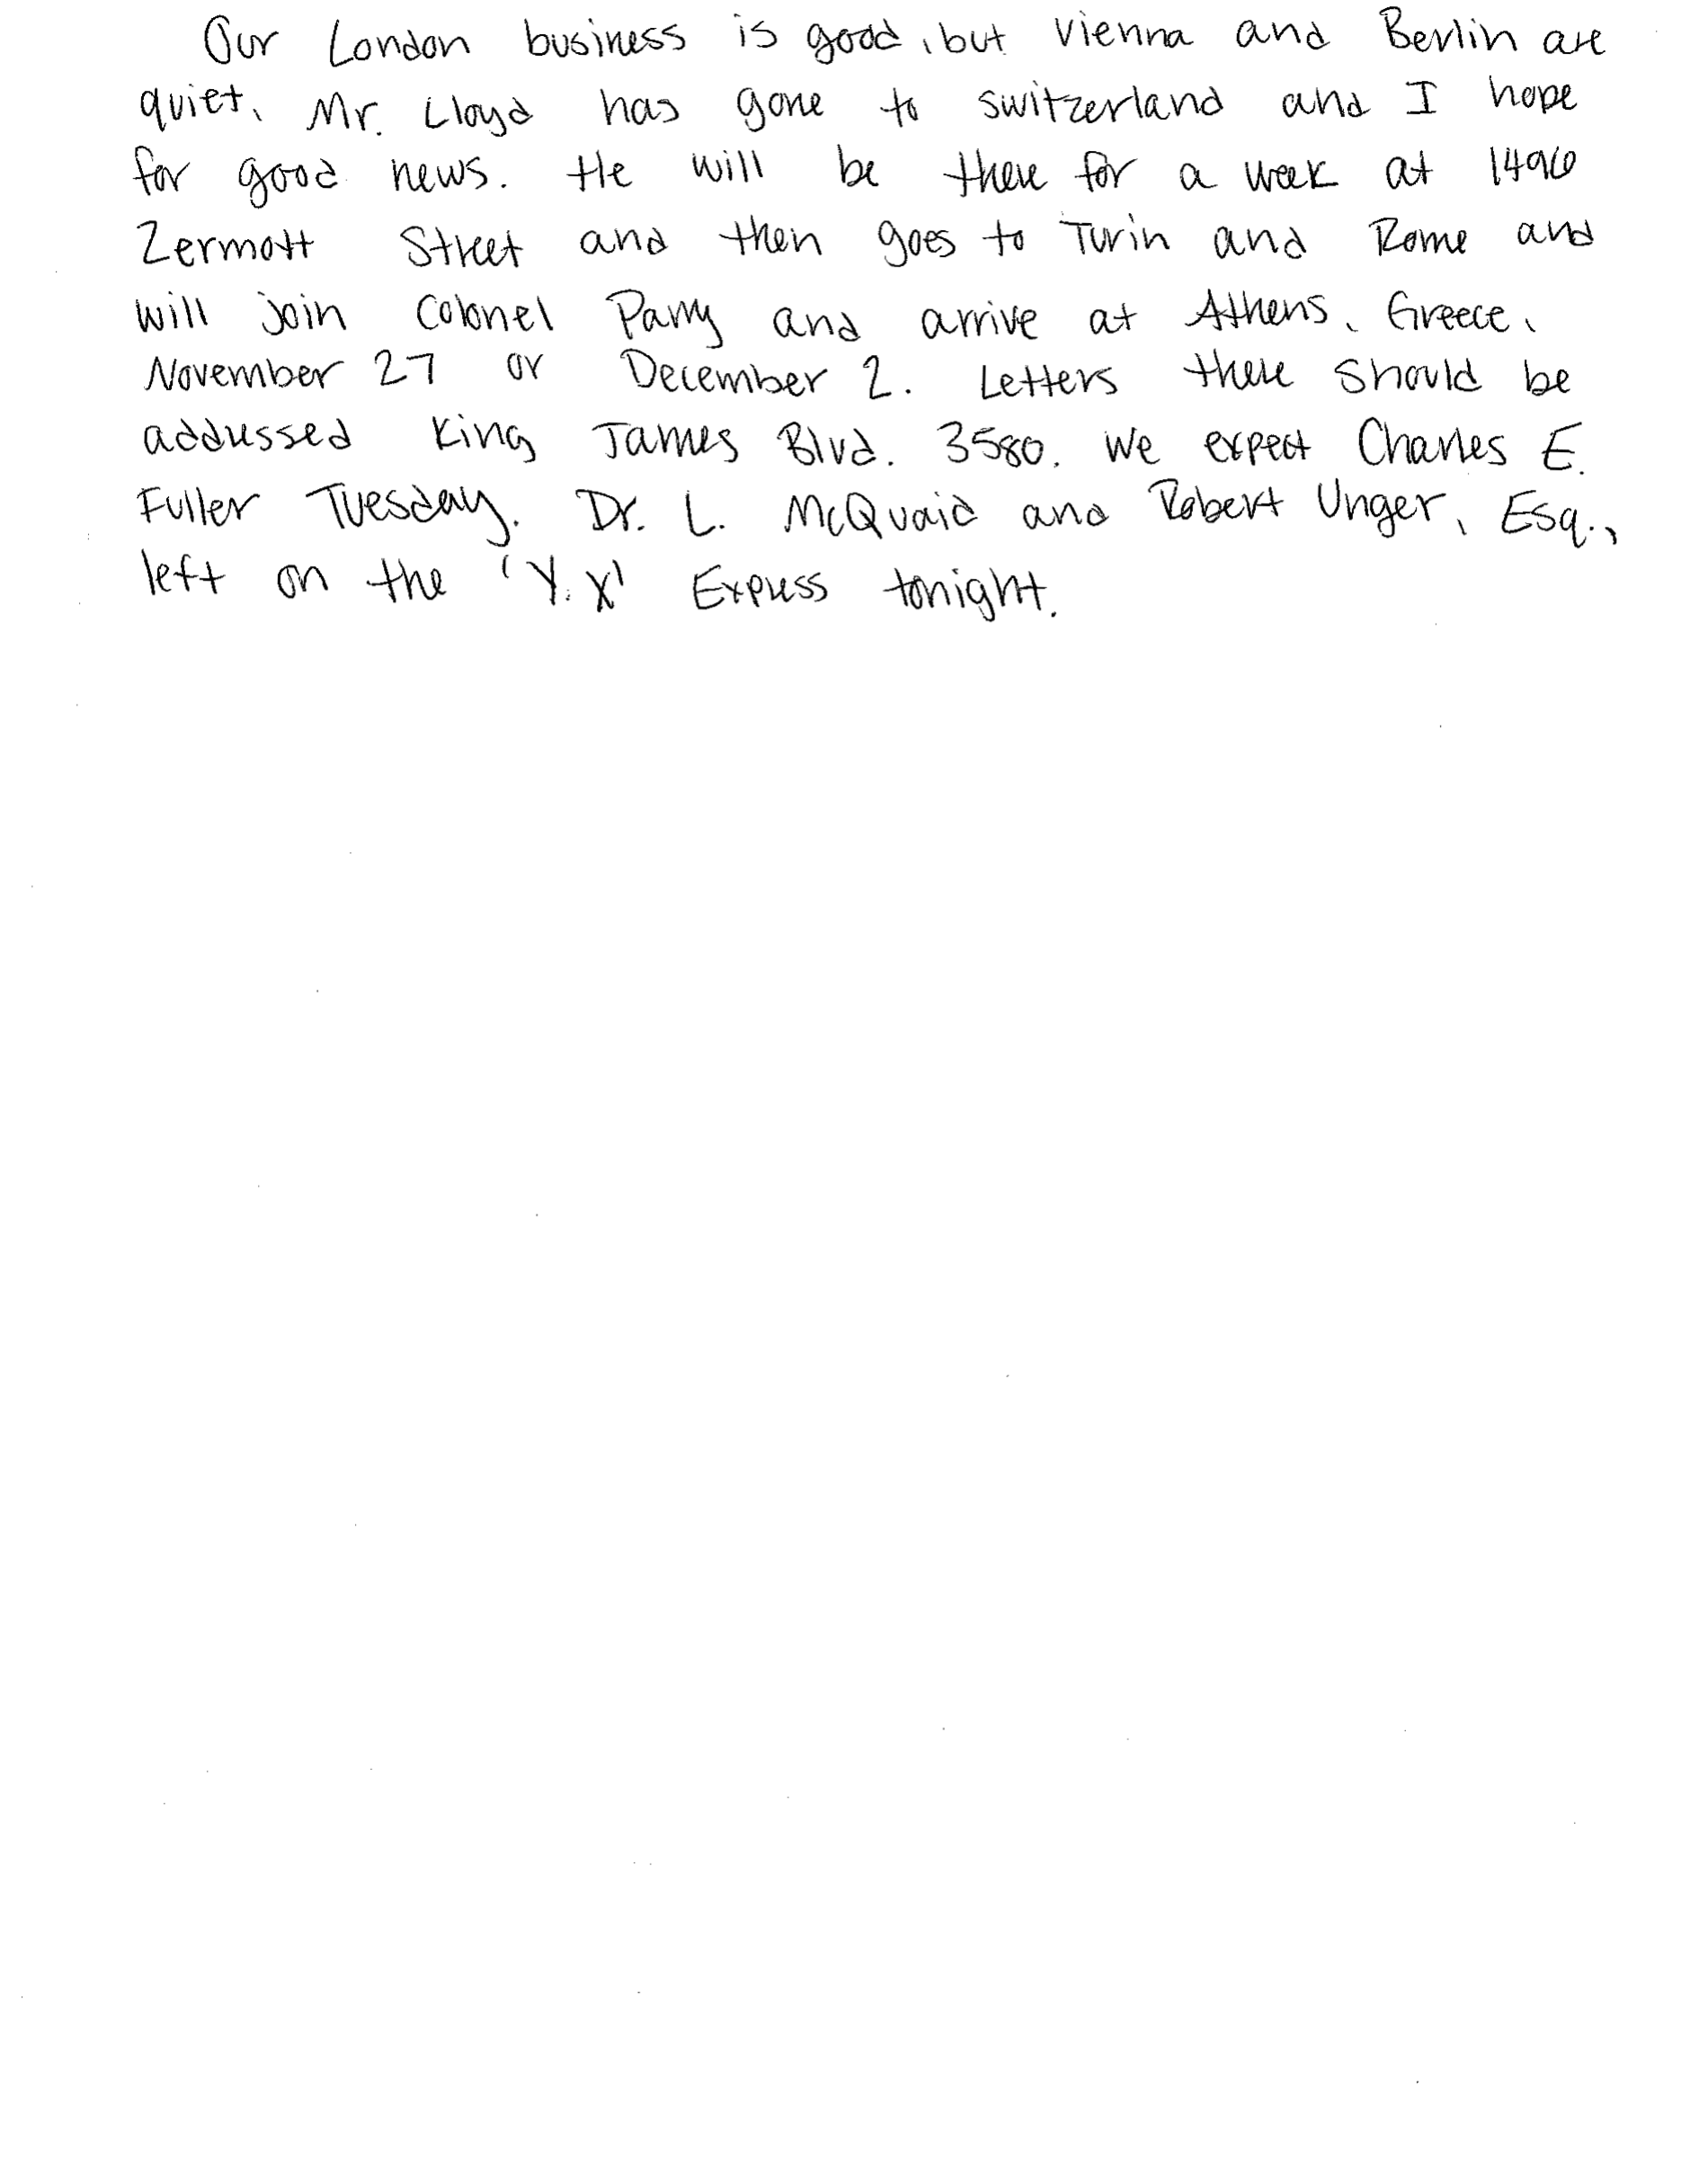 Our London business is good, but Vienna and Berlin are
quiet. Mr. Lloyd has gone to Switzerland and I hope
for good news. He will be there for a week at 1496
Zermott Street and then goes to Turin and Rome and
will join Colonel Parry and arrive at Athens, Greece,
November 27 or December 2. Letters there should be
addressed King James Blvd. 3580. We expect Charles E.
Fuller Tuesday. Dr. L. McQuaid and Robert Unger, Esq.,
left on the 'Y.X' Express tonight.